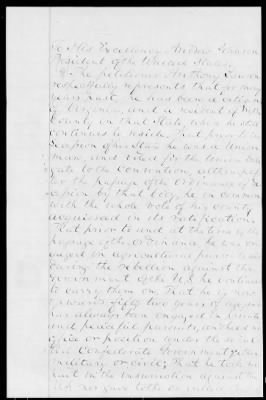 To His Excellency Andrew Johnson
President of the United States.
The petitioner Anthony Lawson
respectfully represents that for many
years past, he has been a citizen
of Virginia, and a resident of
County in that State, where he still
continues to reside. That prior to the
Secession of his State he was a Union
man, and voted for the Union Dele
gate to the Convention, but after
the passage of the Ordinance of Se
cession by that body, he in common
with the whole vote of his county
acquiesced in its ratification.
That prior to and at the time of the
passage of the ordinance he was en
gaged in agricultural pursuits and
during the rebellion against the
Government of the U.S. he continued
to carry them on. That he is now
upwards fifty two years of age and
has always been engaged in private
and peaceful pursuits, and held no
office or position under the so call
ed Confederate Government either
military or civil; That he took no
part in the insurrection against the
U.S. nor gave